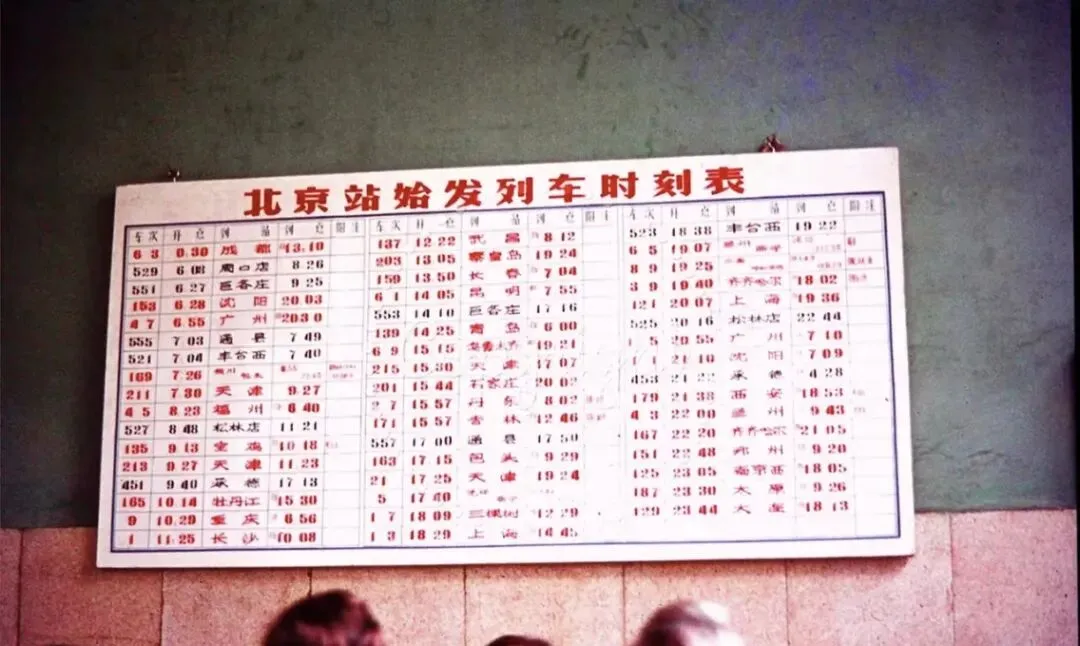 北京站始发列车时刻表
车次 开点 到站 到点 附注
63 0.30 成都 13.10
529 6.08 周口店 8.26
551 6.27 巨各庄 9.25
153 6.28 沈阳 20.03
47 6.55 广州 20.30
555 7.03 通县 7.49
521 7.04 丰台西 7.40
169 7.26 包头
211 7.30 天津 9.27
45 8.23 福州 6.40
527 8.48 松林店 11.21
135 9.13 宝鸡 10.18
213 9.27 天津 11.23
451 9.40 承德 17.13
165 10.14 牡丹江 15.30
9 10.29 重庆 6.56
1 11.25 长沙 10.08
车次 开点 到站 到点 附注
137 12.22 武昌 8.12
203 13.05 秦皇岛 19.24
159 13.50 长春 7.04
61 14.05 昆明 7.55
553 14.10 巨各庄 17.16
139 14.25 青岛 6.00
69 15.15 乌鲁木齐 19.21
215 15.30 天津 17.07
201 15.44 石家庄 20.02
27 15.57 丹东 8.02
171 15.57 吉林 12.46
557 17.00 通县 17.50
163 17.15 包头 9.29
21 17.25 天津 19.24
5 17.40
17 18.09 三棵树 12.29
13 18.29 上海 14.45
车次 开点 到站 到点 附注
523 18.38 丰台西 19.22
65 19.07
89 19.25
39 19.40 齐齐哈尔 18.02
121 20.07 上海 19.36
525 20.16 松林店 22.44
15 20.55 广州 7.10
11 21.10 沈阳 7.09
453 21.22 承德 4.28
179 21.38 西安 18.53
43 22.00 兰州 9.43
167 22.20 齐齐哈尔 21.05
151 22.48 郑州 9.20
125 23.05 南京西 18.05
187 23.30 太原 9.26
129 23.44 大连 18.13